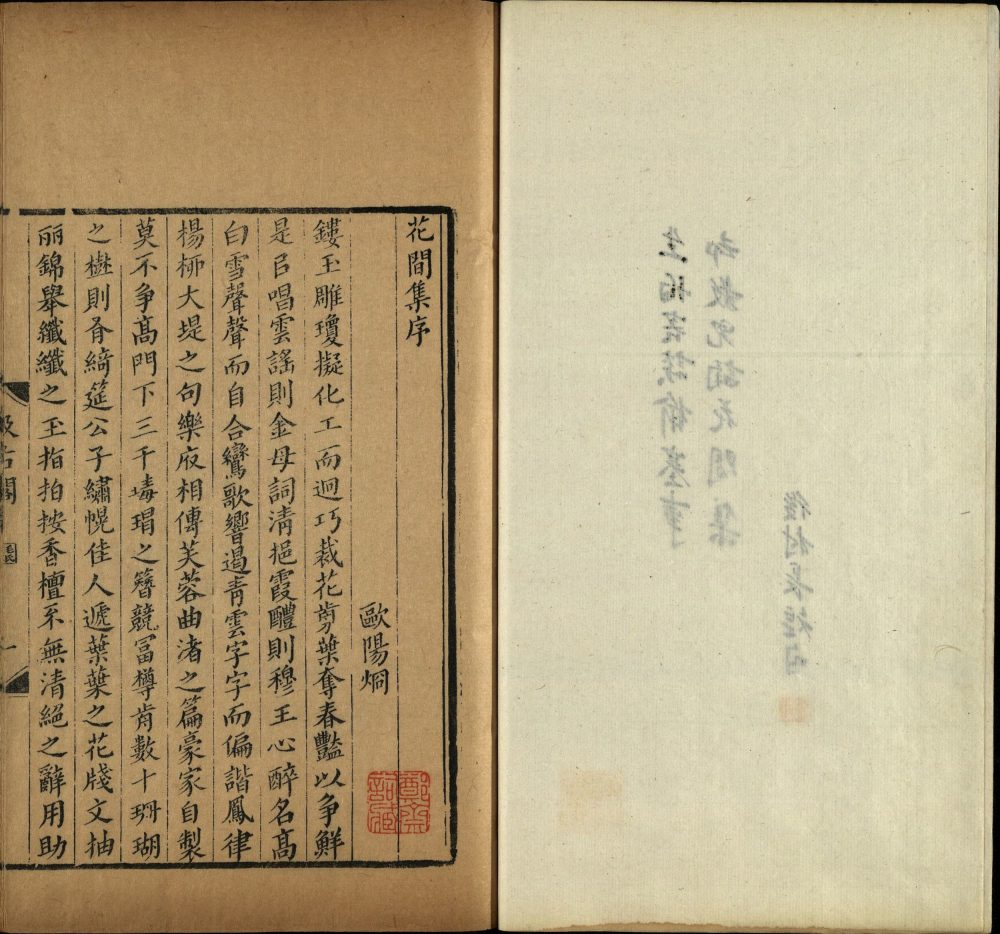 花間集序
歐陽炯
鏤玉雕瓊擬化工而迥巧裁花剪葉奪春豔以争鮮
是㠯唱雲謠則金母詞清挹霞醴則穆王心醉名髙
白雪聲聲而自合鸞歌響遏青雲字字而偏諧鳳律
楊桺大堤之句樂府相傳芙蓉曲渚之篇豪家自製
莫不争髙門下三千瑇瑁之簪競富樽歬數十珊瑚
之樹則有綺筵公子繡幌佳人遞葉葉之花牋文抽
丽錦舉纖纖之玉指拍按香檀不無清絕之辭用助
汲古閣